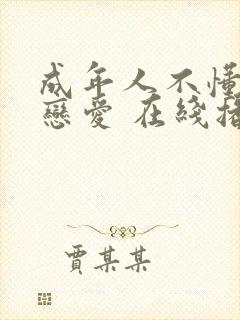 成年人不懂
戀愛 在綫
賈某某